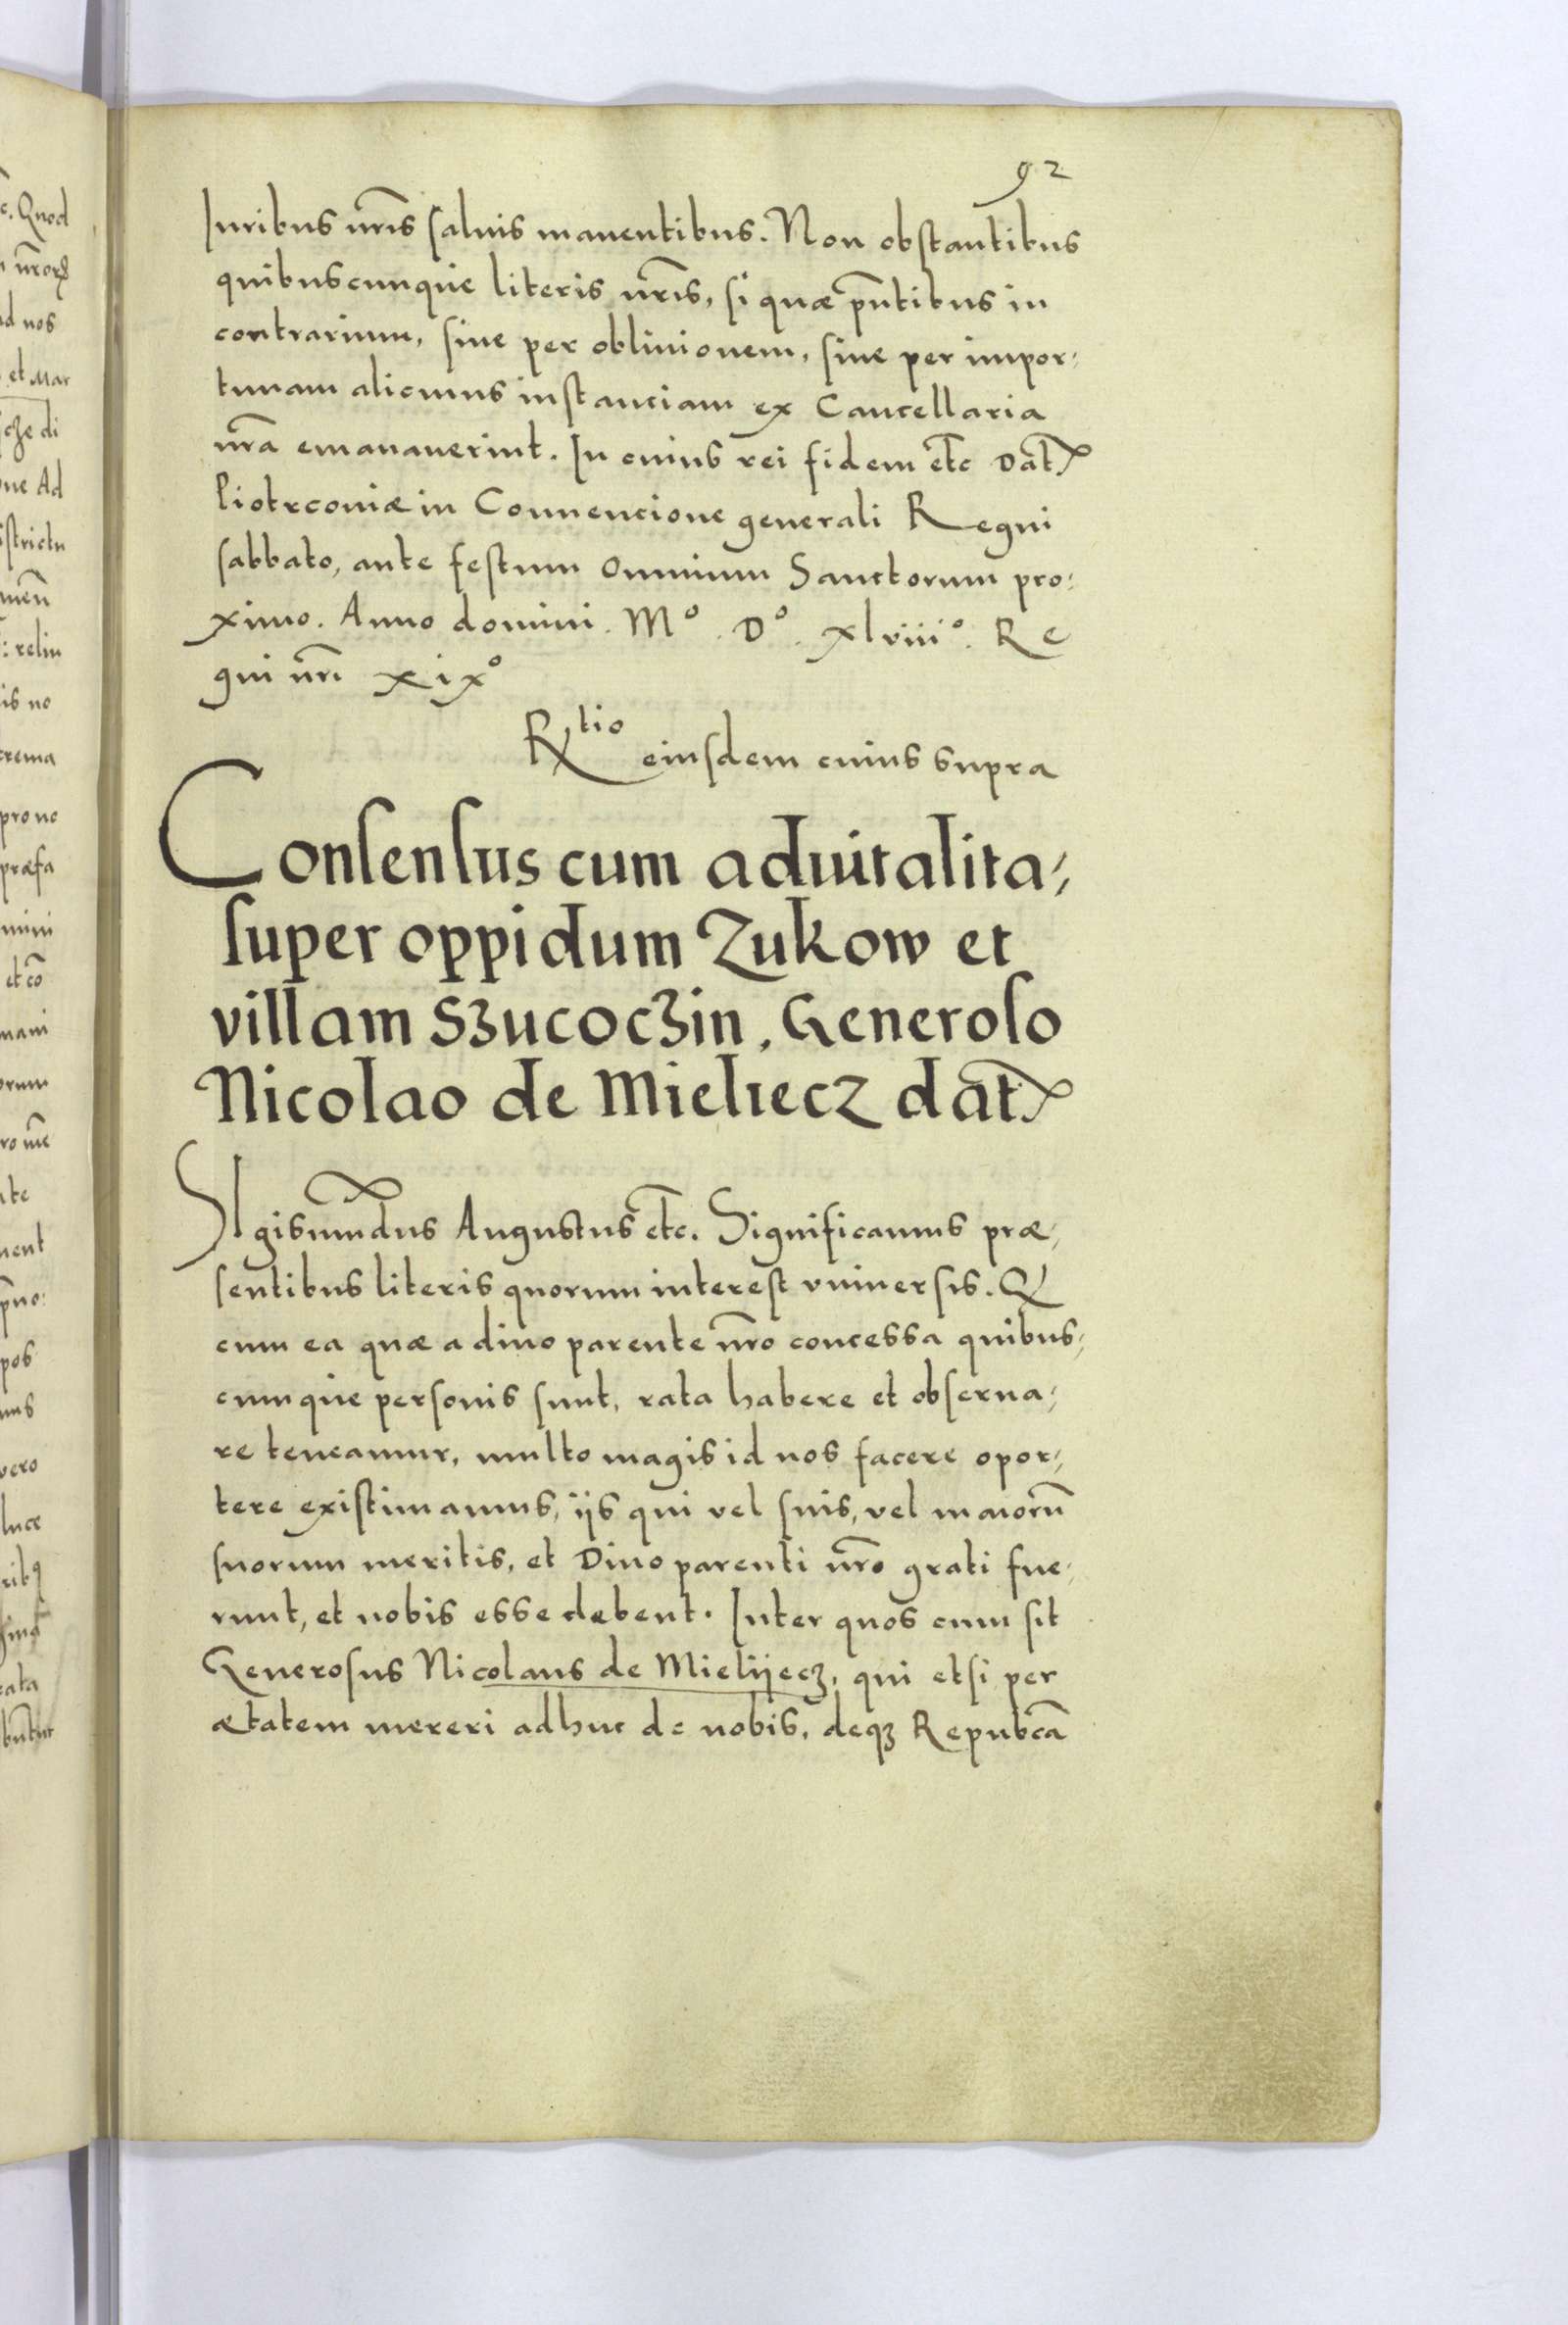 92
Iuribus nr̃is salvis manentibus. Non obstantibus
quibuscunque literis nr̃is, si quæ pñtibus in
contrarium, siue per obliuionem, siue per impor:
tunam alicuius instanciam ex Cancellaria
nr̃a emanauerint. In cuius rei fidem etc̃ Dat̃
Piotrcouiæ in Conuencione generali Regni
sabbato, ante festum Omnium Sanctorum pro:
ximo. Anno domini. Mº. Dº. xlviiiº. Re
gni nr̃i xixº
Rtio eiusdem cuius supra
Consensus cum aduitalita,
super oppidum Zukow et
villam Szucoczin, Generoso
Nicolao de Mieliecz dat̃
SIgismundus Augustus etc̃. Significamus præ,
sentibus literis quorum interest vniuersis. Q
cum ea quæ a diuo parente nr̃o concessa quibus,
cumque personis sunt, rata habere et obserua,
re teneamur, multo magis id nos facere opor,
tere existimamus, ijs qui vel suis, vel maiorũ
suorum meritis, et Diuo parenti nr̃o grati fue,
runt, et nobis esse debent. Inter quos cum sit
Generosus Nicolaus de Mielijecz, qui etsi per
ætatem mereri adhuc de nobis, deqz Repubcã
c. Quod
d nos
et Mar
cze di
ne Ad
strictu
: reliu
is no
rema
pro no
præfa
mini
et cõ
mani
orum
nent
pos
vero
luce
cata